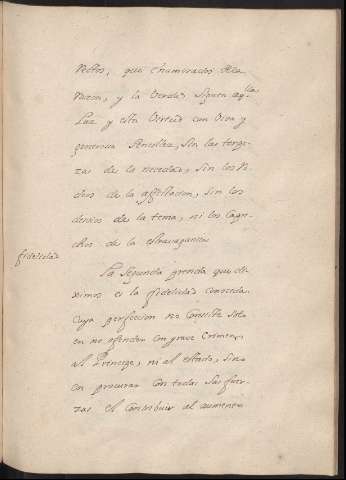 rectos, que enamorados de la
razon, y la verdad siguen aqlla
Luz y esta virtud con viva y
generosa sencillez, sin las torpe-
zas de la necedad, sin los
de la afectacion, sin los
desvios de la tema, ni los capri-
chos de la extravagancia
fidelidad
La segunda prenda que di-
ximos es la fidelidad conocida
cuya perfeccion no consiste solo
en no ofender con grave crimen
al Principe, ni al estado, sino
en procurar con todas sus fuer-
zas el contribuir al aumento